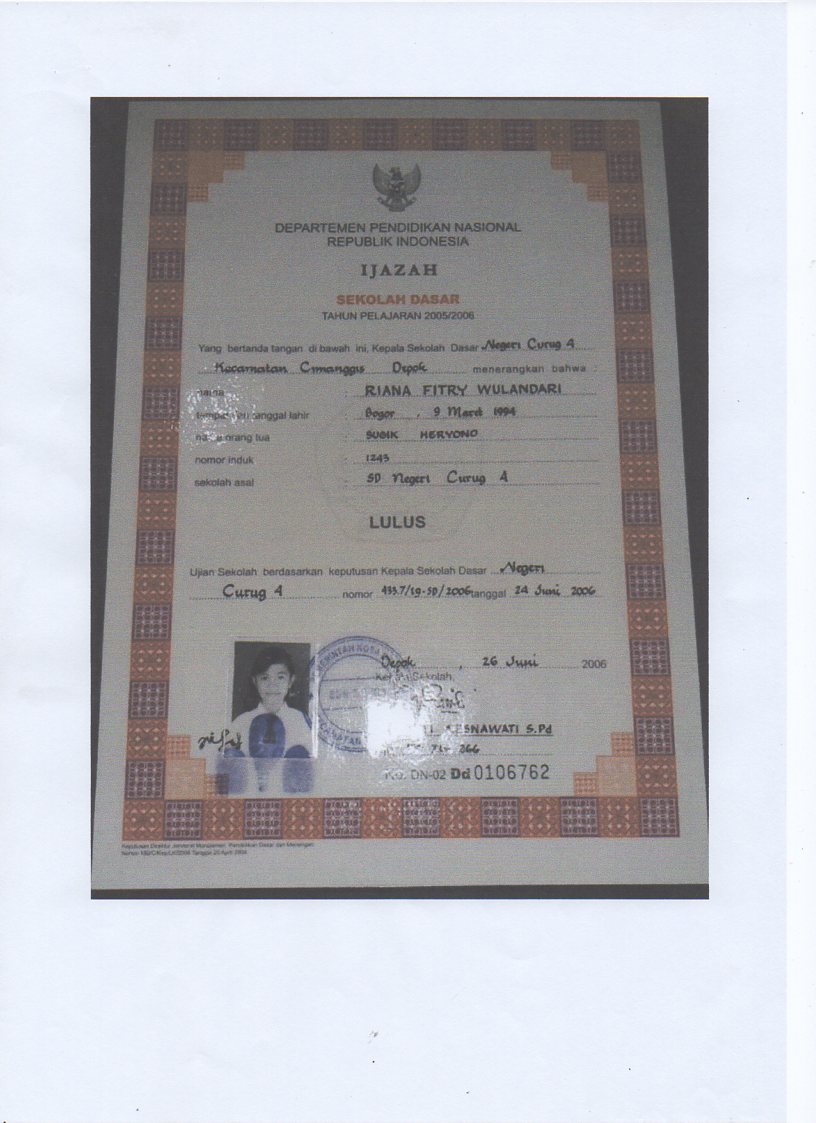 DEPARTEMEN PENDIDIKAN NASIONAL
REPUBLIK INDONESIA
IJAZAH
SEKOLAH DASAR
TAHUN PELAJARAN 2005/2006
Yang bertanda tangan di bawah ini, Kepala Sekolah Dasar Negeri Curug 4
Kecamatan Cimanggis Depok menerangkan bahwa :
nama : RIANA FITRY WULANDARI
tempat dan tanggal lahir : Bogor , 9 Maret 1994
nama orang tua : SUGIK HERYONO
nomor induk : 1243
sekolah asal : SD Negeri Curug 4
LULUS
Ujian Sekolah berdasarkan keputusan Kepala Sekolah Dasar Negeri
Curug 4 nomor 433.7/19-SD/2006 tanggal 24 Juni 2006
Depok , 26 Juni 2006
Kepala Sekolah,
S.Pd
266
No. DN-02 Dd 0106762
Keputusan Direktur Jenderal Manajemen Pendidikan Dasar dan Menengah
Tanggal 20 April 2006